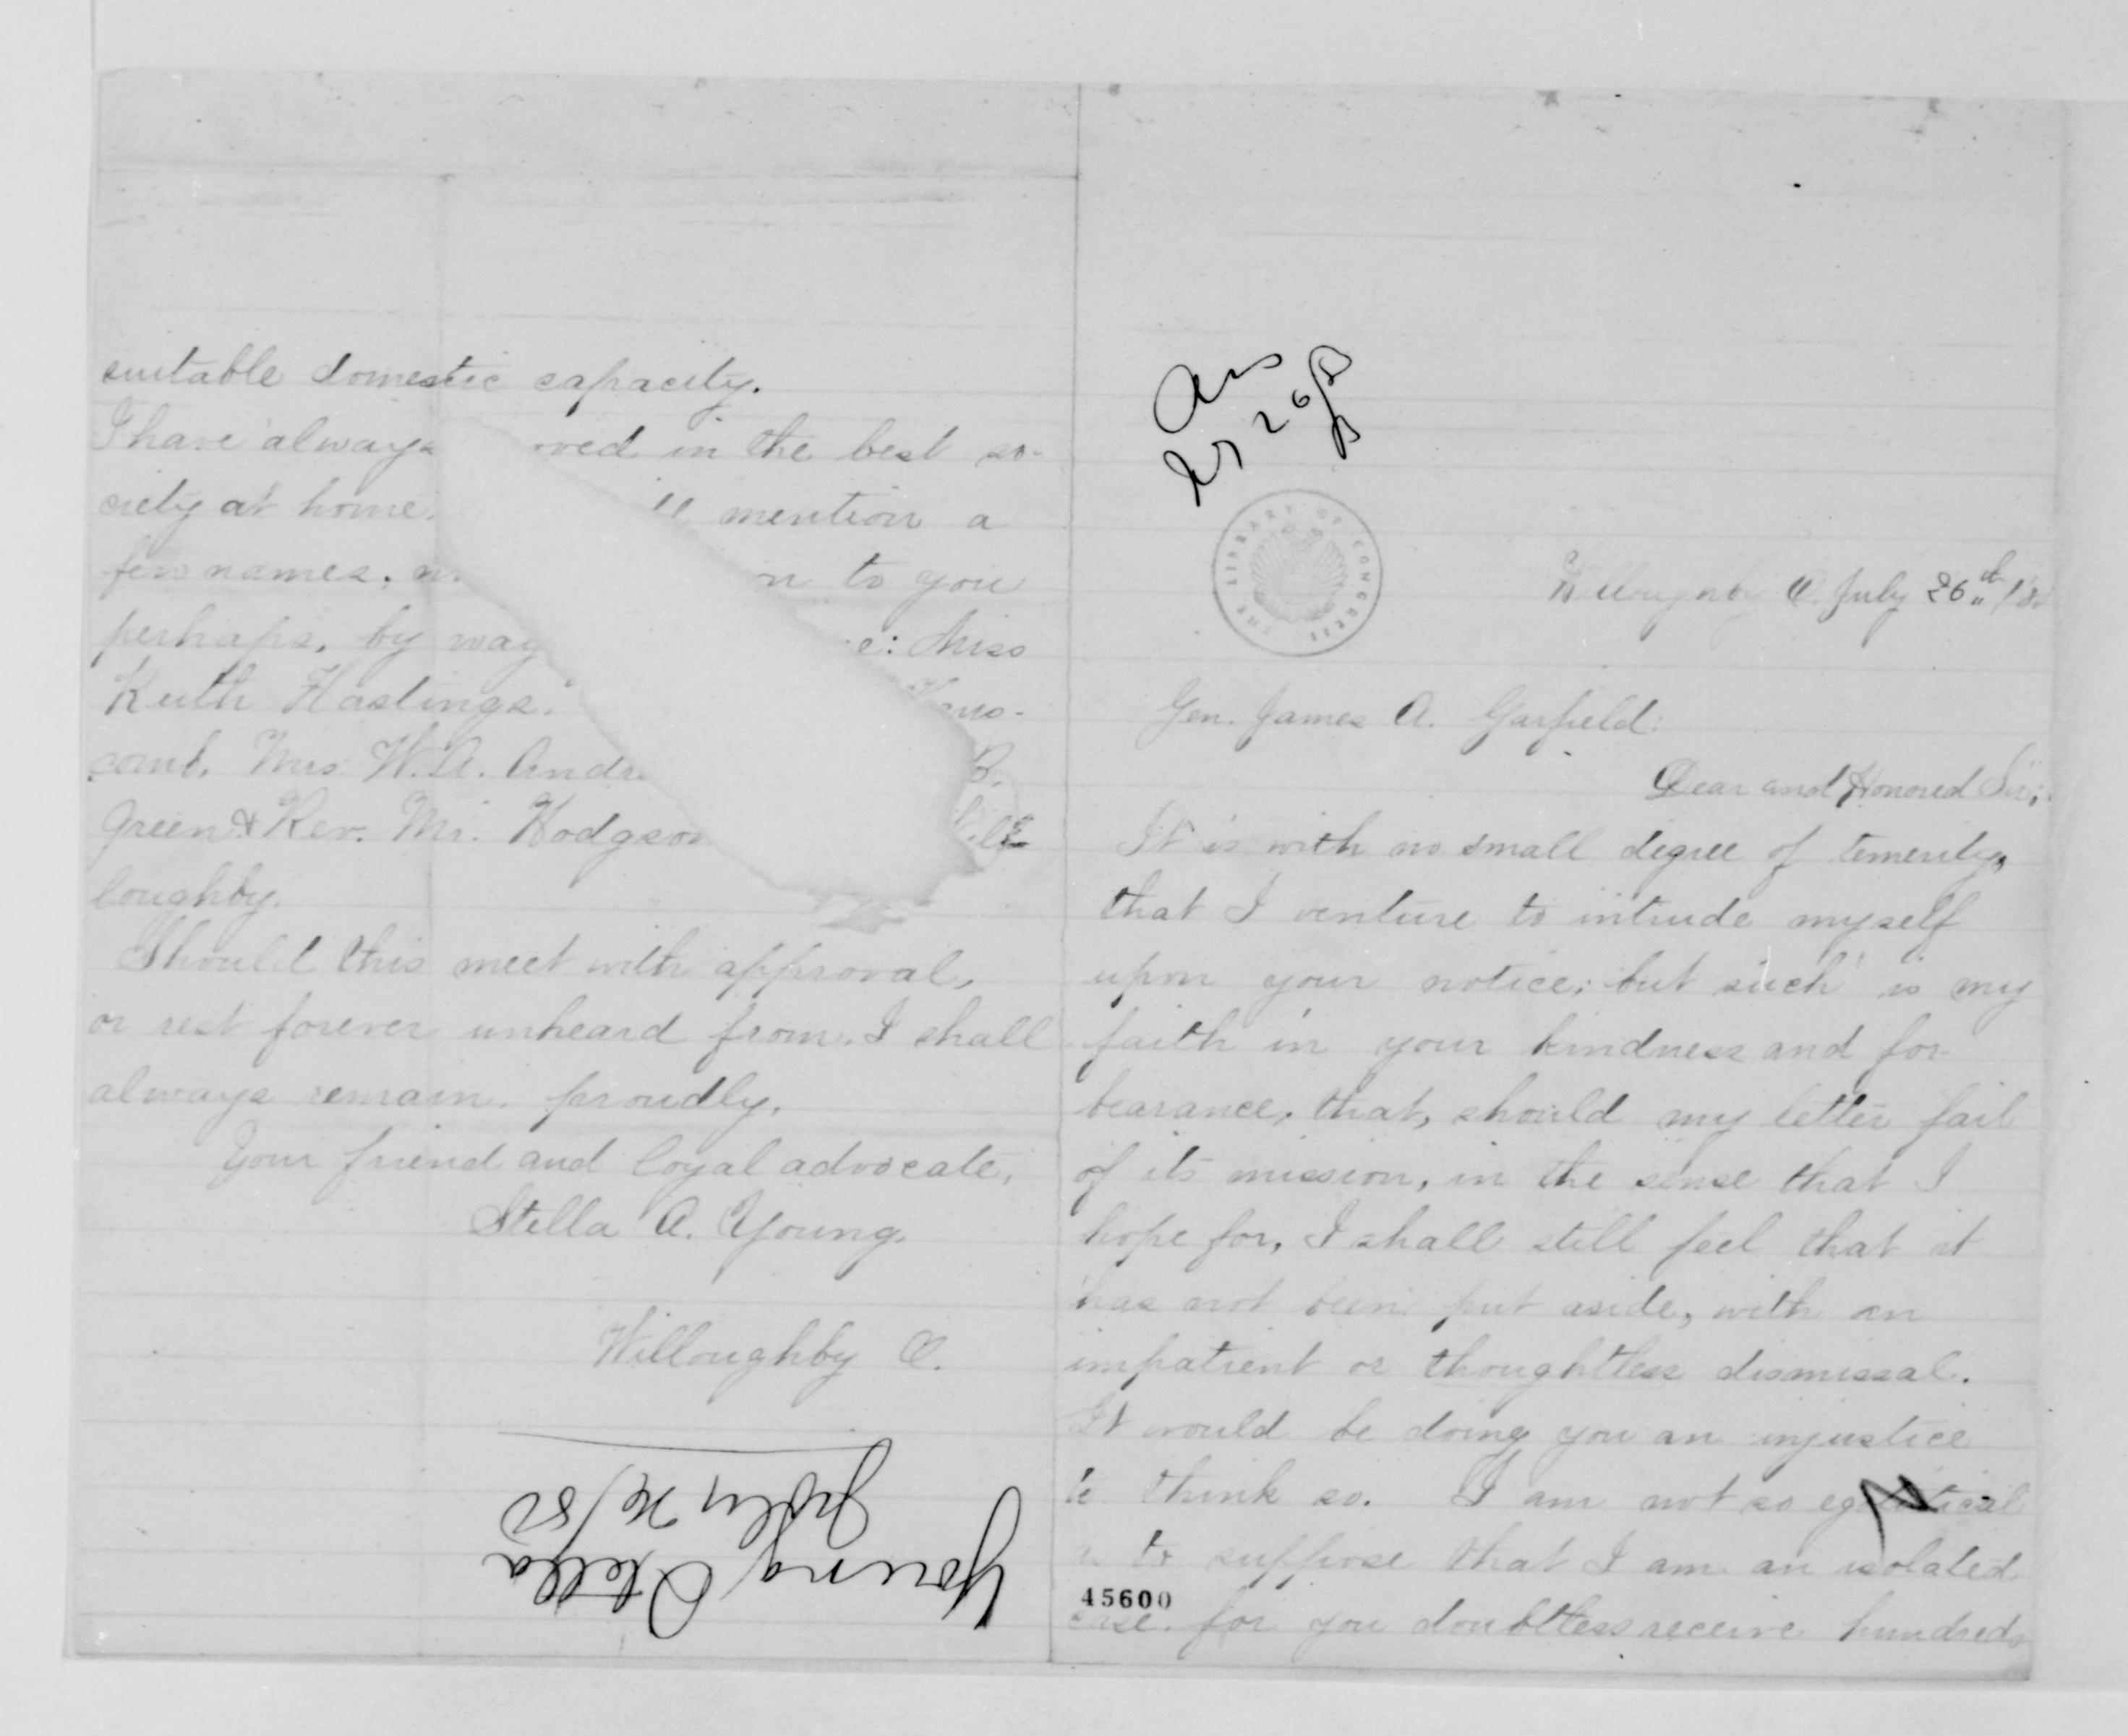 suitable domestic capacity.
I have always oved in the best so-
ciety at home. ll mention a
few names, n to you
perhaps, by way e: Miss
Ruth Hastings.
comb, Mrs. W. A. Andre B.
Green & Rev. Mr. Hodgson Wil-
loughby.
Should this meet with approval,
or rest forever unheard from, I shall
always remain, proudly,
Your friend and loyal advocate,
Stella A. Young.
Willoughby O.
Young Stella
July 26/80
Ans
26/80
THE LIBRARY OF CONGRESS
Willoughby O. July 26th /80
Gen. James A. Garfield:
Dear and Honored Sir:
It is with no small degree of temerity,
that I venture to intrude myself
upon your notice; but such is my
faith in your kindness and for-
bearance, that, should my letter fail
of its mission, in the sense that I
hope for, I shall still feel that it
has not been put aside, with an
impatient or thoughtless dismissal.
It would be doing you an injustice
to think so. I am not so egotistical
as to suppose that I am an isolated
case, for you doubtless receive hundreds
45600